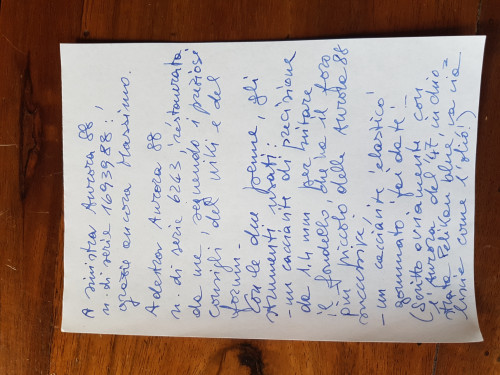 A sinistra Aurora 88
n. di serie 1693988:
grazie ancora Massimo.
A destra Aurora 88
n. di serie 6243 restaurata
da me seguendo i preziosi
consigli del wiki e del
forum.
Con le due penne, gli
strumenti usati:
- un cacciavite di precisione
da 1.4 mm per svitare
il fondello, aveva il foro
più piccolo delle Aurora 88
successive,
- un cacciavite elastico
gommato fai da te -
(scritto ovviamente con
l'Aurora del '47,
Pelikan
come l'olio!)